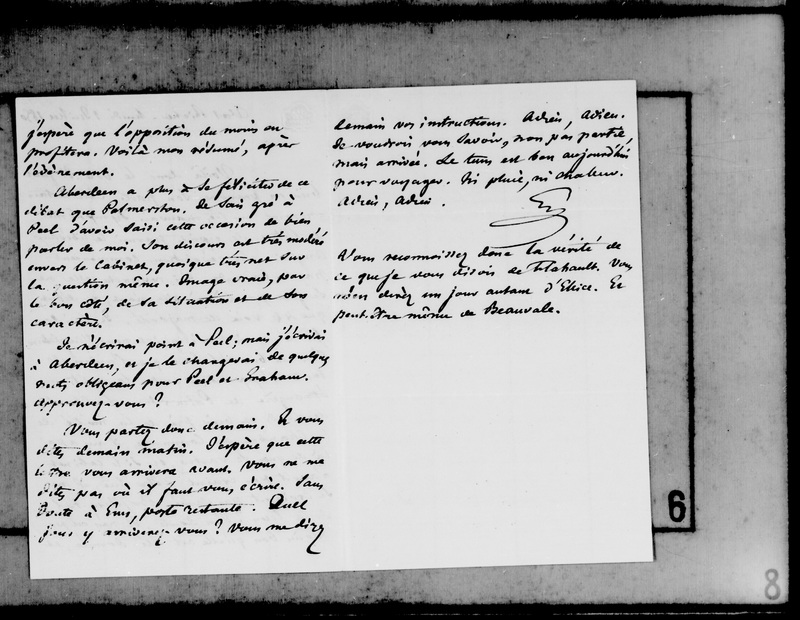 j'espère que l'opposition du moins en
profitera. Voilà mon résumé, après
l'évènement.
Aberdeen a plus à se féliciter de ce
débat que Palmerston. Je sais gré à
Peel d'avoir saisi cette occasion de bien
parler de moi. Son discours est très modéré
envers le Cabinet, quoique très net sur
la question même. Image vraie, par
le bon côté, de sa situation et de son
caractère.
Je n'écrirai point à Peel; mais j'écrirai
à Aberdeen, et je le chargerai de quelques
mots obligeans pour Peel et Graham.
Approuvez-vous ?
Vous partez donc demain. Et vous
dites demain matin. J'espère que cette
lettre vous arrivera avant. Vous ne me
dites pas où il faut vous écrire. Sans
doute à Ems, poste restante. Quel
jour y arriverez-vous ? Vous me direz
demain vos instructions. Adieu, Adieu.
Je voudrois vous savoir, non pas partie,
mais arrivée. Le tems est bon aujourd'hui
pour voyager. Ni pluie, ni chaleur.
Adieu, Adieu.
Vous reconnoissez donc la vérité de
ce que je vous disois de Flahault. Vous
m'en direz un jour autant d'Ellice. Et
peut-être même de Beauvale.
6
8